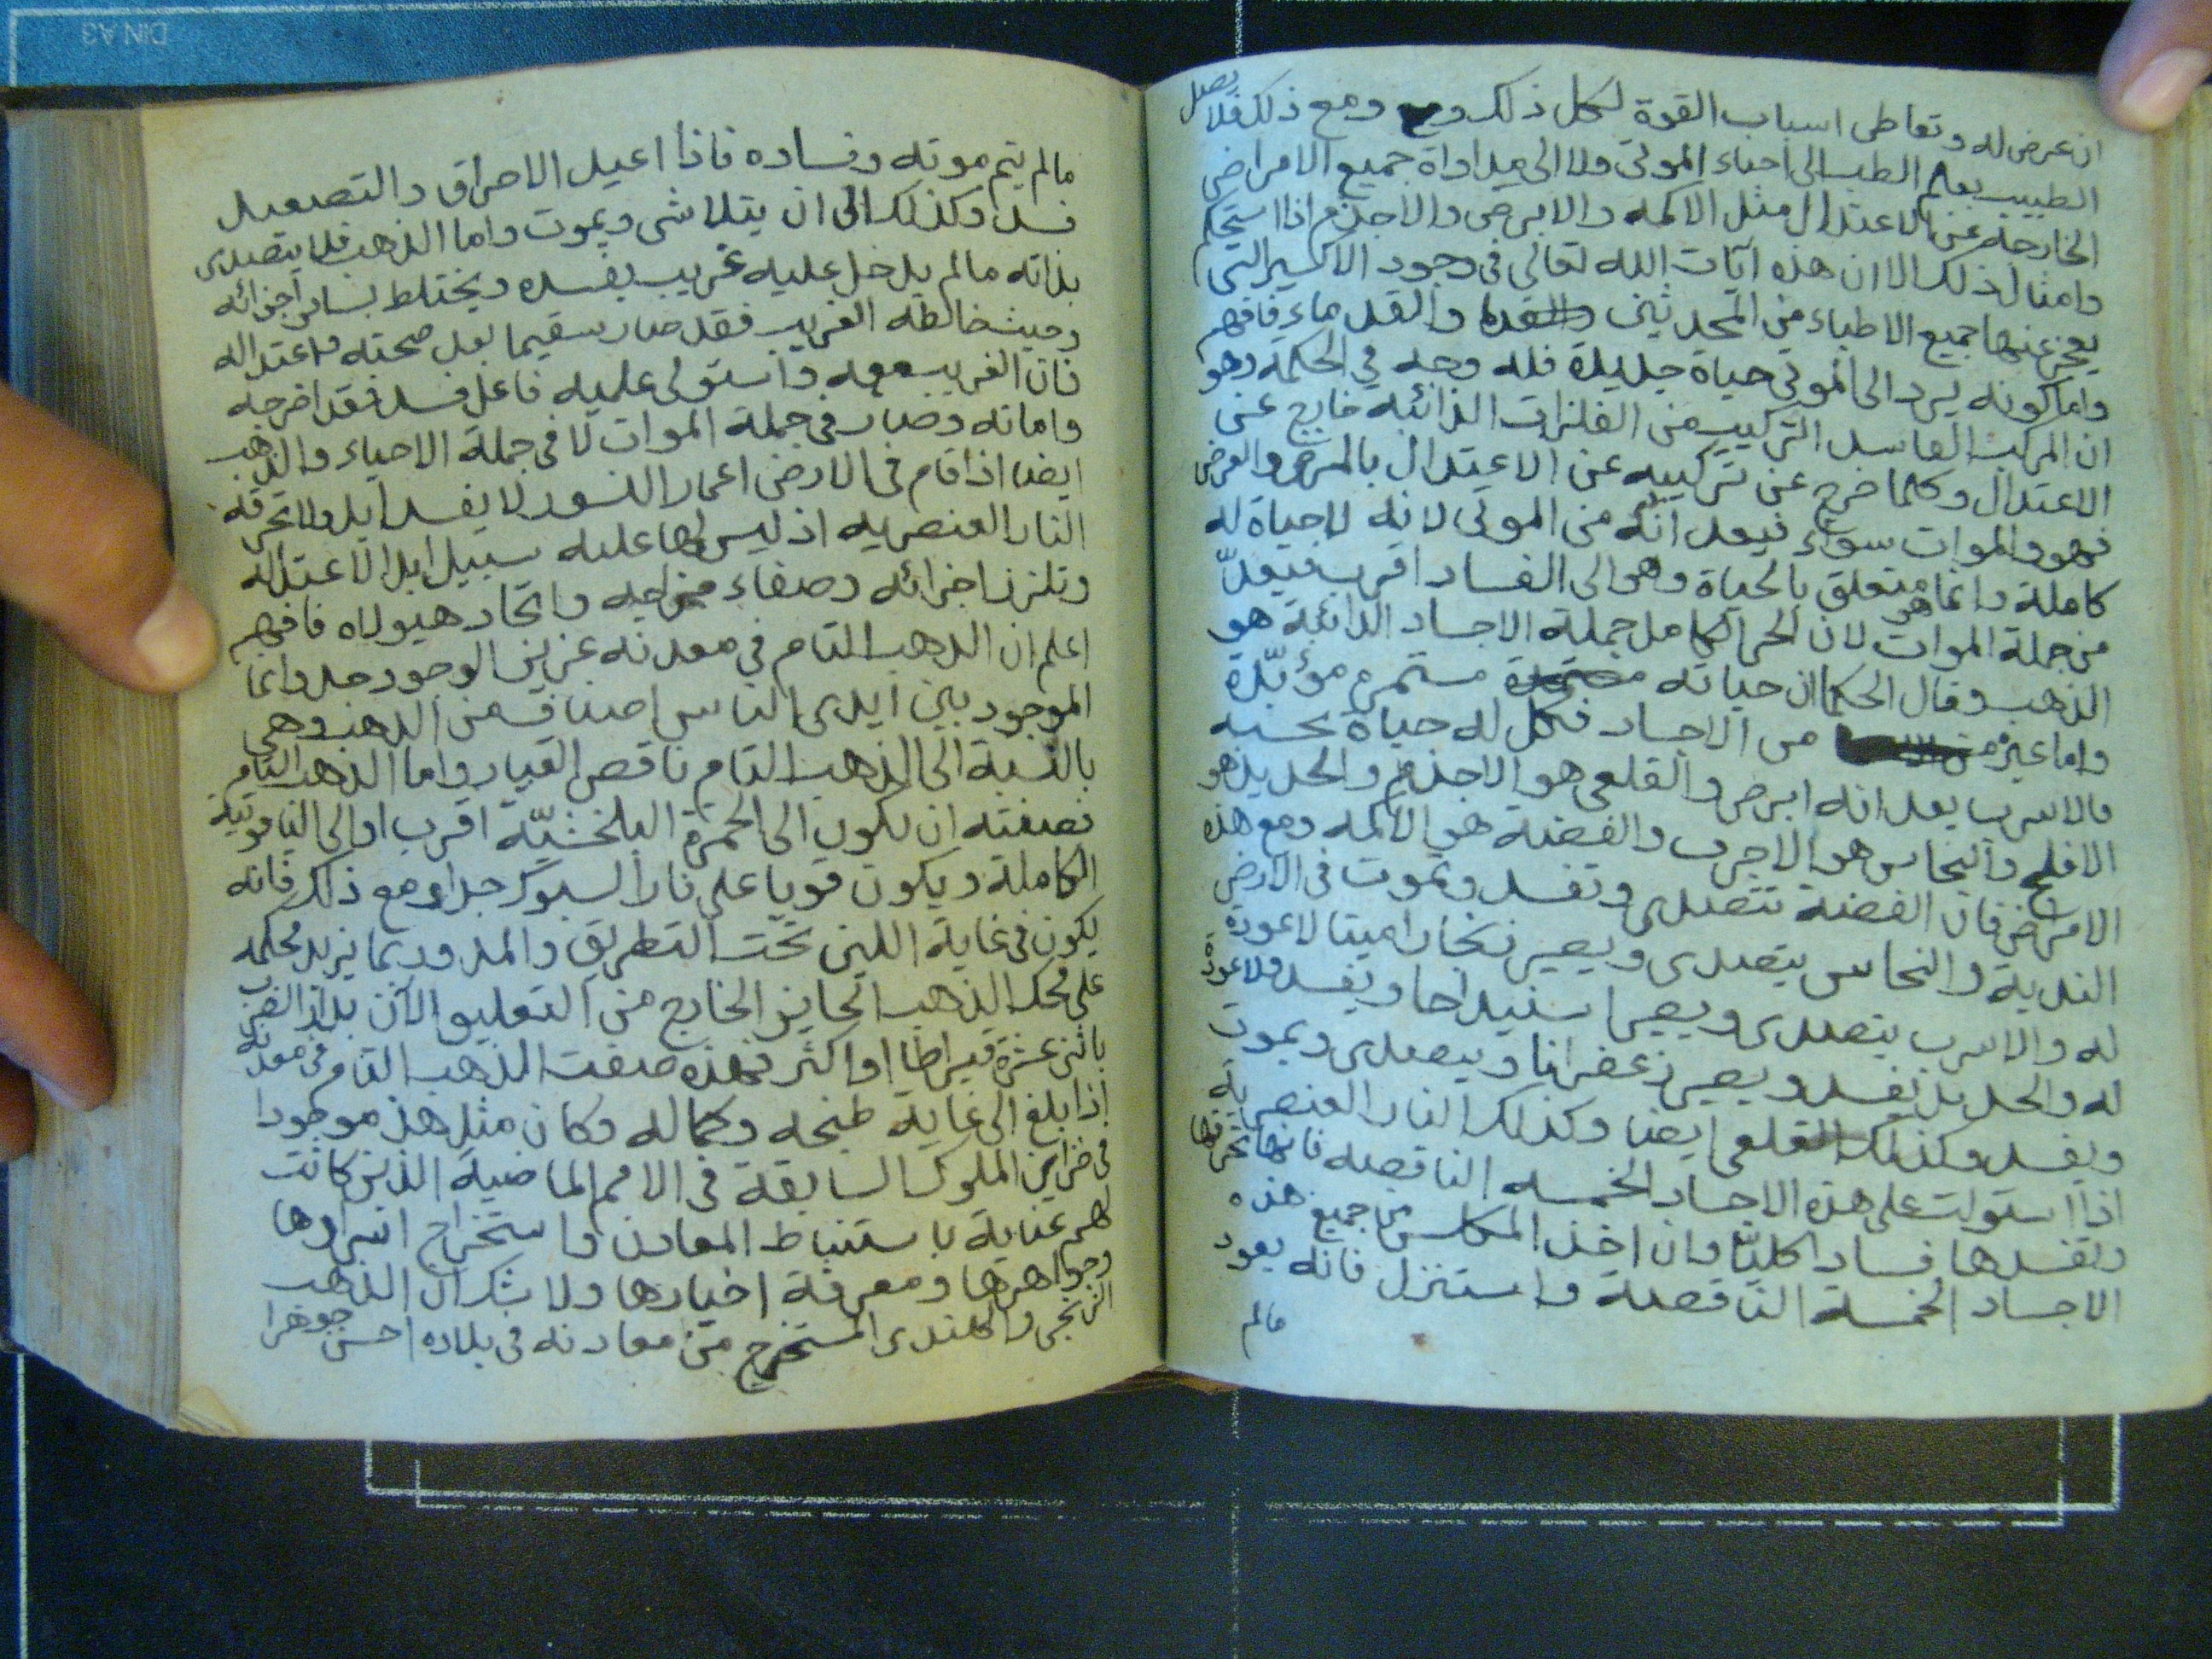 ان عرض له وتعاطى اسباب القوة لكل ذلك ومع ذلك فلا يصل
الطبيب بعلم الطب الى احياء الموتى ولا الى مداواة جميع الامراض
الخارجه عن الاعتدال مثل الاكمه والابرص والاجذم اذا استحكم
وامثال ذلك الا ان هذه آيات الله تعالى فى وجود الاكسير التى
يعجز عنها جميع الاطباء من المحدثين والقدماء فافهم
واما كونه يرد الى الموتى حياة جديدة فله وجه في الحكمة وهو
ان المركب الفاسد التركيب من الفلزات الذائبه خارج عن
الاعتدال وكلما خرج عن تركيبه عن الاعتدال بالمرض والعرض
فهو والموات سواء فيعد انه من الموتى لانه لا حياة له
كاملة وانما هو متعلق بالحياة وهو الى الفساد اقرب فيعدّ
من جملة الموات لان الحى الكامل جملة الاجساد الذائبة هو
الذهب وقال الحكما ان حياته مستمرة مؤبّدة
واما غيره من الاجساد فكل له حياة بحسبه
فالاسرب يعد انه ابرص والقلعى هو الاجذم والحديد هو
الافلج والنحاس هو الاجرب والفضة هو الاكمه ومع هذه
الامراض فان الفضة تتصدى وتفسد وتموت فى الارض
الندية والنحاس يتصدى ويصير زنجارا ميتا لا عودة
له والاسرب يتصدى ويصير اسفيداجا ويفسد ولا عودة
له والحديد يفسد ويصير زعفرانا ويتصدى ويموت
ويفسد وكذلك القلعى ايضا وكذلك النار العنصريه
اذا استولت على هذه الاجساد الخمسه الناقصه فانها تحرقها
وتفسدها فسادا كليّا وان اخذ المكلس من جميع هذه
الاجساد الخمسة الناقصة واستنزل فانه يعود
مالم
مالم يتم موته وفساده فاذا اعيد الاحراق والتصعيد
فسد وكذلك الى ان يتلاشى ويموت واما الذهب فلا يتصدى
بذاته مالم يدخل عليه غريب يفسده ويختلط بساير اجزائه
وحيث خالطه الغريب فقد صار سقيما بعد صحته واعتداله
فان الغريب معه واستولى عليه فاعل فسد فقد اخرجه
واماته وصار فى جملة الموات لا فى جملة الاحياء والذهب
ايضا اذا قام فى الارض اعمار النسور لا يفسد ابدا ولا تحرقه
النار العنصريه اذ ليس لها عليه سبيل ابدا لاعتداله
وتلزز اجزائه وصفاء مزاجه واتحاد هيولاه فافهم
اعلم ان الذهب التام في معدنه عزيز الوجود جدا وانما
الموجود بين ايدى الناس اصناف من الذهب وهى
بالنسبة الى الذهب التام ناقص العيار واما الذهب التام
فصفته ان يكون الى الحمرة البلخشيّة اقرب او الى الياقوتية
الكاملة ويكون قويا على نار السبوك جدا ومع ذلك فانه
يكون فى غاية اللين تحت التطريق والمد وربما يزيد محكه
على محك الذهب الجايز الخارج من التعليق الآن بدار الضرب
باثنى عشرة قيراطا او اكثر فهذه صفت الذهب التام فى معدنه
اذا بلغ الى غاية طبخه وكماله وكان مثل هذ موجودا
فى خزاين الملوك السابقة فى الامم الماضية الذين كانت
لهم عناية باستنباط المعادن واستخراج اسرارها
وجواهرها ومعرفة اخيارها ولا شك ان الذهب
الزنجى والهندى المستخرج من معادنه فى بلاده احسن جوهرا